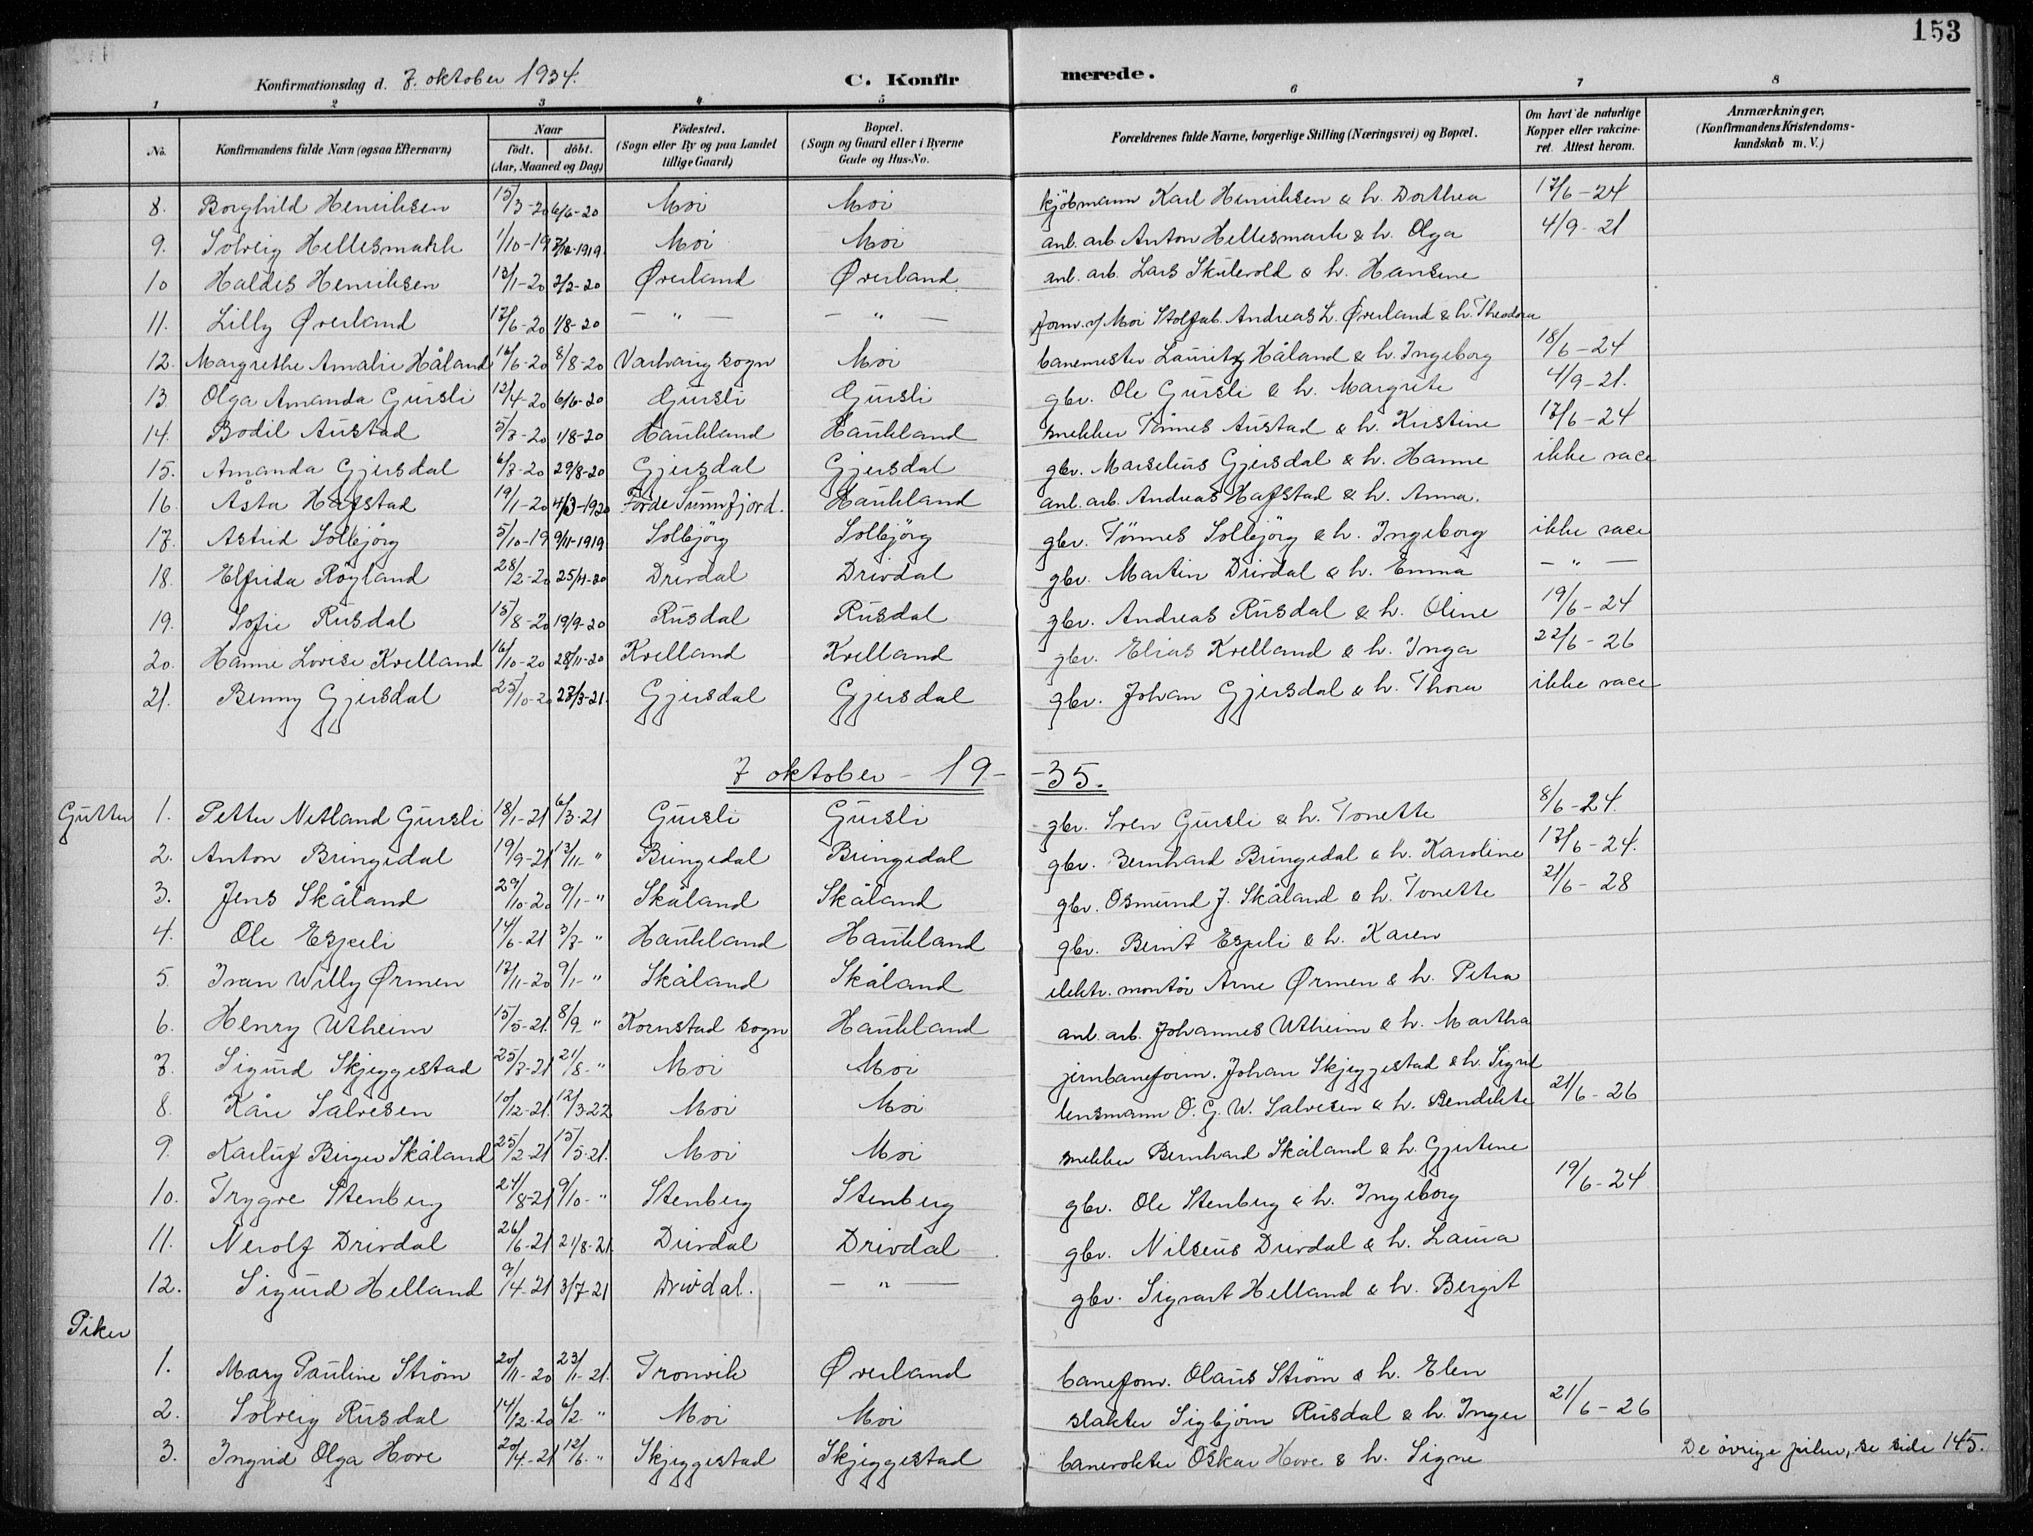 153
Konfirmationsdag d. 7. oktober 1934. C. Konfirmerede.
1 2 3 4 5 6 7 8
No. Konfirmandens fulde Navn (ogsaa Efternavn) Naar födt. döbt. (Aar, Maaned og Dag) Födested. (Sogn eller By og paa Landet tillige Gaard) Bopæl. (Sogn og Gaard eller i Byerne Gade og Hus-No. Forældrenes fulde Navne, borgerlige Stilling (Næringsvei) og Bopæl. Om havt de naturlige Kopper eller vakcineret. Attest herom. Anmærkninger, (Konfirmandens Kristendomskundskab m. V.)
8. Borghild Henriksen 15/3-20 6/6-20 Moi Moi kjøbmann Karl Henriksen & h. Dorthea 17/6-24
9. Solveig Hellesmark 1/10-19 7/12-1919. Moi Moi anl. arb. Anton Hellesmark & h. Olga 4/9-21
10 Haldis Henriksen 13/1-20 2/2-20 Øverland Øverland anl. arb. Lars Skulevold & h. Hansine
11. Lilly Øverland 17/6-20 1/8-20 — " — — " — form. v/ Moi Stolfab. Andreas L. Øverland & h. Theodora
12. Margrethe Amalie Håland 16/6-20 8/8-20 Varhaug sogn Moi banemester Lauritz Håland & h. Ingeborg 18/6-24
13 Olga Amanda Gursli 12/4-20 6/6-20 Gursli Gursli gbr. Ole Gursli & h. Margrete 4/9-21.
14. Bodil Austad 5/7-20 1/8-20 Haukland Haukland snekker Tønnes Austad & h. Kristine 17/6-24
15. Amanda Gjersdal 6/7-20 29/8-20 Gjersdal Gjersdal gbr. Marselius Gjersdal & h. Hanne ikke vacc
16. Åsta Hafstad 19/1-20 4/3-1920 Førde Sunnfjord. Haukland anl. arb. Andreas Hafstad & h. Anna.
17. Astrid Solbjörg 5/10-19 9/11-1919 Solbjörg Solbjörg gbr. Tönnes Solbjörg & h. Ingeborg ikke vacc
18. Elfrida Röyland 28/2-20 25/4-20 Drivdal Drivdal gbr. Martin Drivdal & h. Emma — " —
19. Sofie Rusdal 15/8-20 19/9-20 Rusdal Rusdal gbr. Andreas Rusdal & h. Oline 19/6-24
20. Hanne Lovise Kvelland 16/10-20 28/11-20 Kvelland Kvelland gbr. Elias Kvelland & h. Inga 22/6-26
21. Benny Gjersdal 25/10-20 27/3-21. Gjersdal Gjersdal gbr. Johan Gjersdal & h. Thora ikke vacc
7 oktober - 19- -35.
Gutter 1. Petter Netland Gursli 18/1-21 6/3-21 Gursli Gursli gbr. Sven Gursli & h. Tonette 8/6-24.
2. Anton Bringedal 19/9-21 13/11- " Bringedal Bringedal gbr. Bernhard Bringedal & h. Karoline 17/6-24.
3. Jens Skåland 29/10-20 9/1- " Skåland Skåland gbr. Osmund J. Skåland & h. Tonette 21/6-28
4. Ole Espeli 14/6-21 3/7- " Haukland Haukland gbr. Bernt Espeli & h. Karen
5. Ivan Willy Ørmen 17/11-20 9/1- " Skåland Skåland elektr. montör Arne Ørmen & h. Petra
6. Henry Utheim 15/5-21. 8/9 " Kornstad sogn Haukland anl. arb. Johannes Utheim & h. Martha
7. Sigurd Skjeggestad 25/7-21 21/8- " Moi Moi jernbaneform. Johan Skjeggestad & h. Sigrid
8. Kåre Salvesen 10/12-21. 12/3-22 Moi Moi lensmann O. G. W. Salvesen & h. Bendikte 21/6-26
9. Karluf Birger Skåland 25/2-21 15/5-21. Moi Moi snekker Bernhard Skåland & h. Gjertine
10. Trygve Stenberg 21/8-21 9/10- " Stenberg Stenberg gbr. Ole Stenberg & h. Ingeborg 19/6-24
11. Nerolf Drivdal 26/6-21 21/8-21. Drivdal Drivdal gbr. Nilseus Drivdal & h. Laura
12. Sigurd Helland 9/4-21 3/7-21 Drivdal. — " — gbr. Sigvart Helland & h. Bergit
Piker
1. Mary Pauline Strøm 20/11-20 23/1-21. Tronvik Øverland baneform. Olaus Strøm & h. Elen
2. Solveig Rusdal 14/12-20 6/2- " Moi Moi slakter Sigbjörn Rusdal & h. Inger 21/6-26
3. Ingrid Olga Hove 20/4-21 12/6- " Skjeggestad Skjeggestad banevokter Oskar Hove & h. Signe De øvrige piker, se side 145.